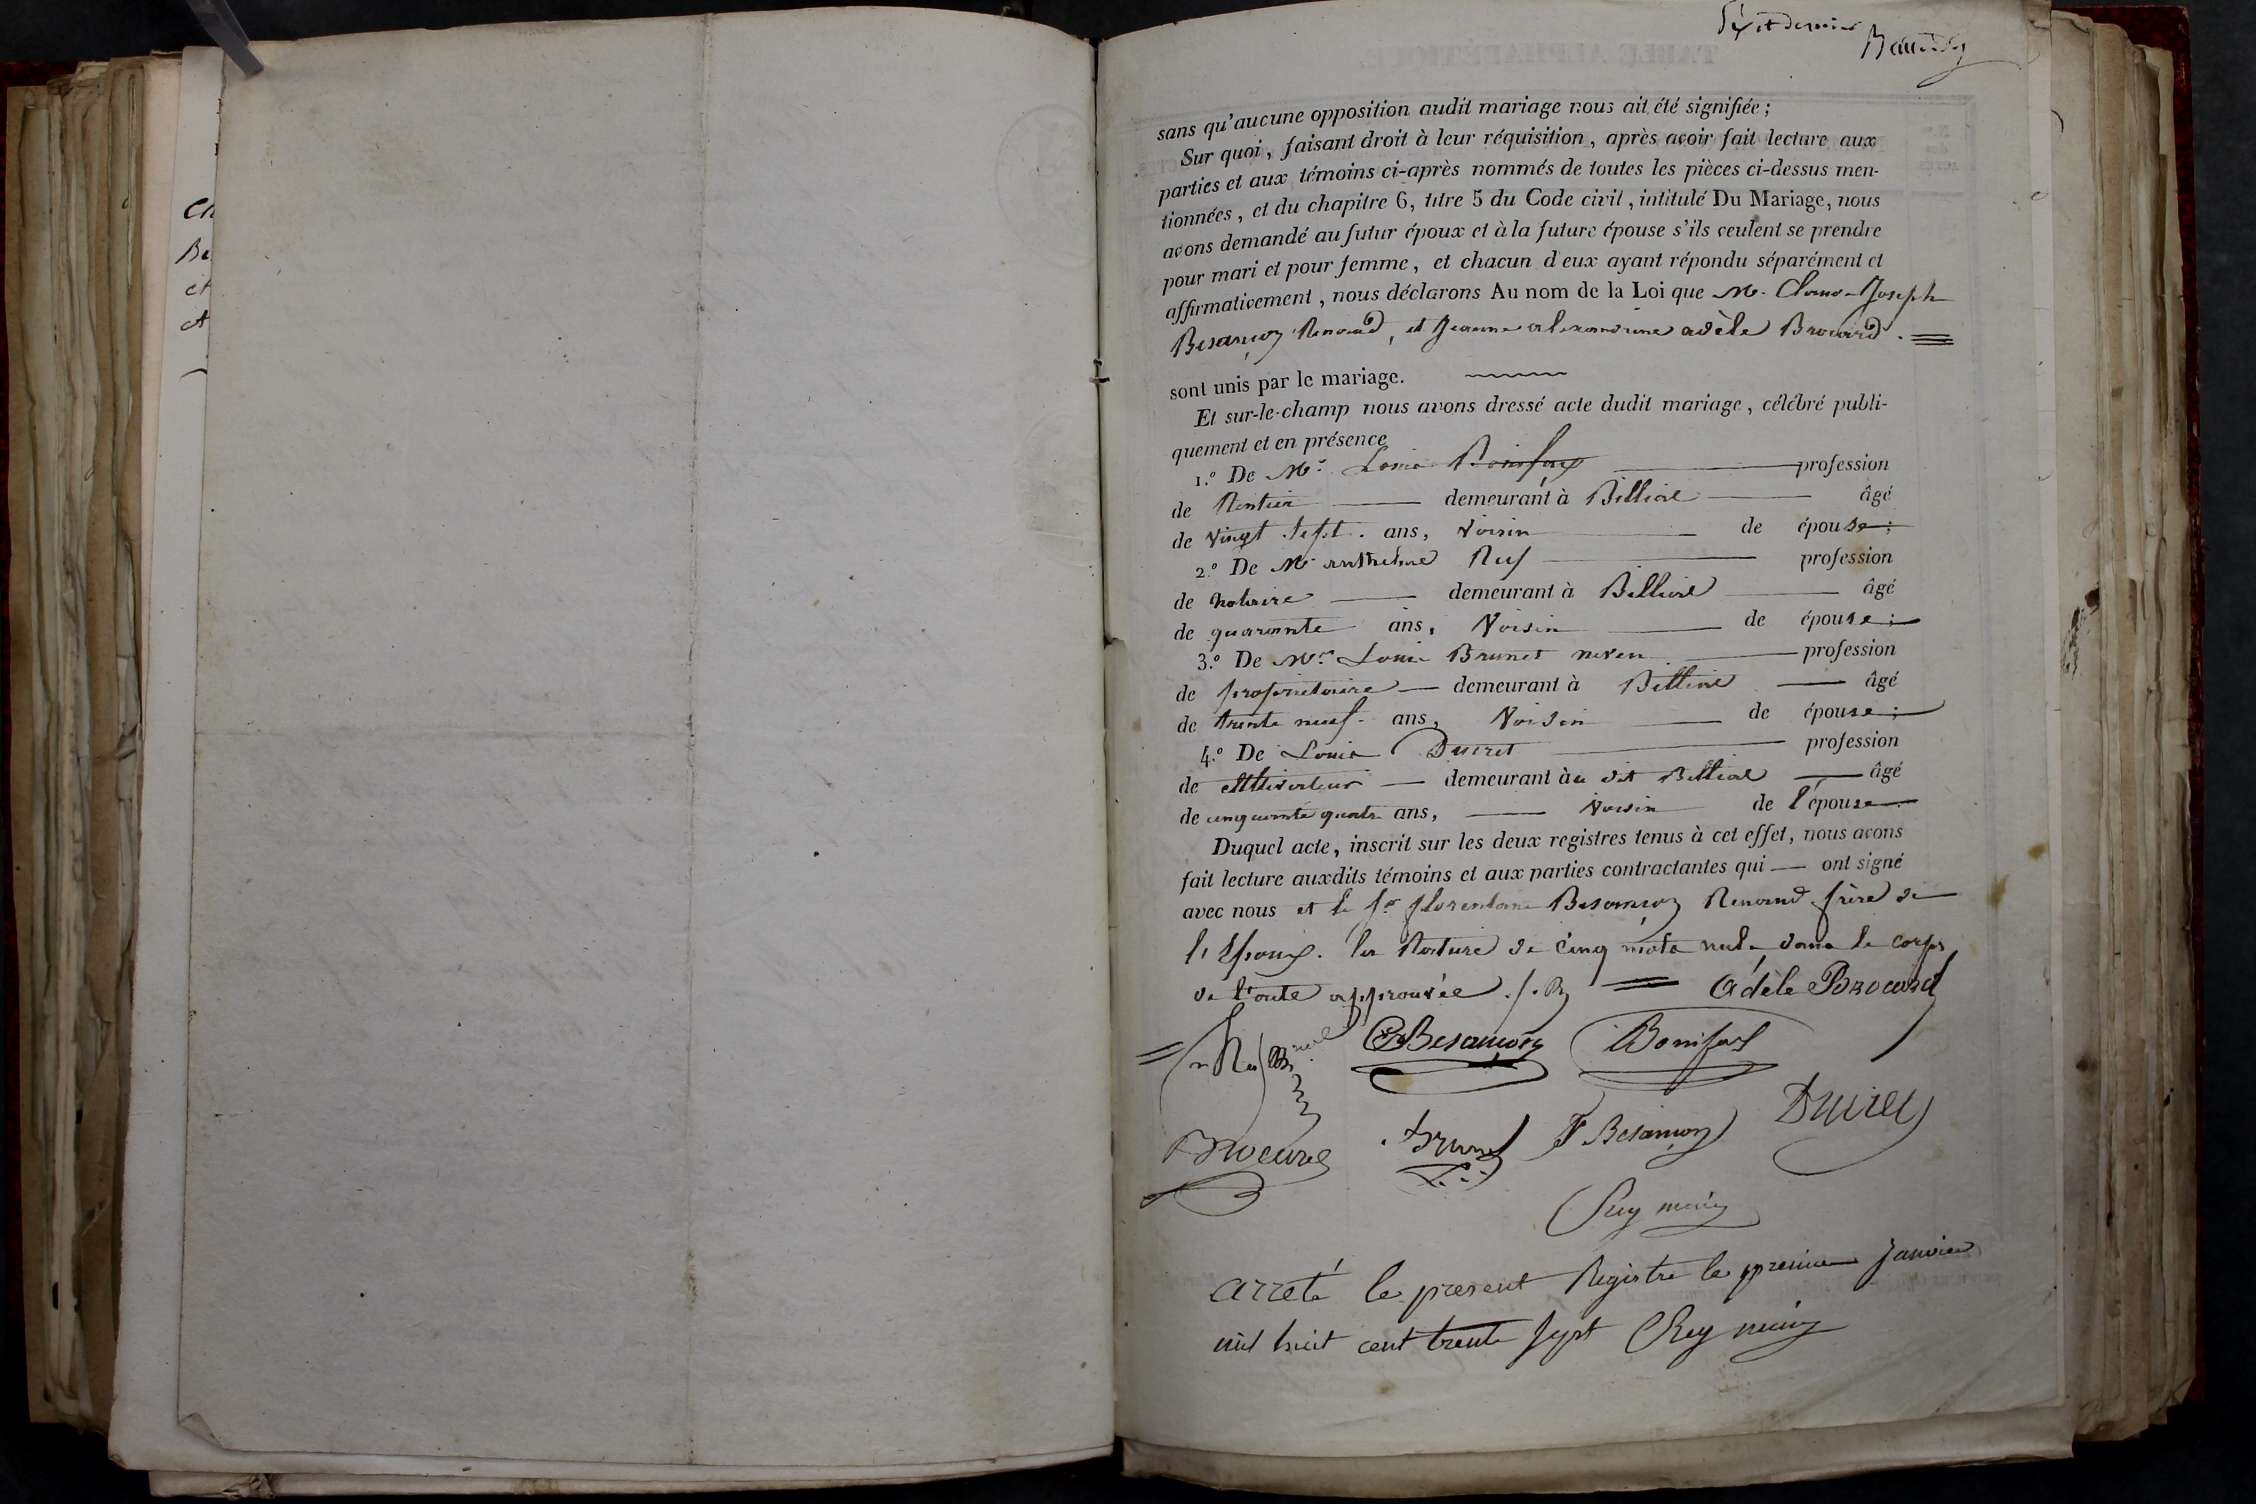 Six et dernier
sans qu'aucune opposition audit mariage nous ait été signifiée ;
Sur quoi, faisant droit à leur réquisition, après avoir fait lecture aux
parties et aux témoins ci-après nommés de toutes les pièces ci-dessus men-
tionnées, et du chapitre 6, titre 5 du Code civil, intitulé Du Mariage, nous
avons demandé au futur époux et à la future épouse s'ils veulent se prendre
pour mari et pour femme, et chacun d'eux ayant répondu séparément et
affirmativement, nous déclarons Au nom de la Loi que Mr. Claude Joseph
Besançon Renaud, et Jeanne alexandrine adèle Brocard.
sont unis par le mariage.
Et sur-le-champ nous avons dressé acte dudit mariage, célébré publi-
quement et en présence
1.º De Mr. Louis Bonifax profession
de Rentier demeurant à Billiat âgé
de vingt sept ans, voisin de épouse ;
2.º De Mr anthelme Ruf profession
de notaire demeurant à Billiat âgé
de quarante ans, Voisin de épouse ;
3.º De Mr. Louis Brunet neveu profession
de propriétaire demeurant à Billiat âgé
de trente neuf ans, Voisin de épouse ;
4.º De Louis Ducret profession
de cultivateur demeurant à u dit Billiat âgé
de cinquante quatre ans, voisin de l'épouse
Duquel acte, inscrit sur les deux registres tenus à cet effet, nous avons
fait lecture auxdits témoins et aux parties contractantes qui ont signé
avec nous et le Sr. florentin Besançon Renaud frère de
l'Epoux. la Rature de cinq mots nuls dans le corps
de l'acte approuvée
Adèle Brocard
Besançon Bonifax
Brocard Brunet F Besançon Ducret
Rey maire
arreté le present Registre le premier Janvier
mil huit cent trente sept Rey maire